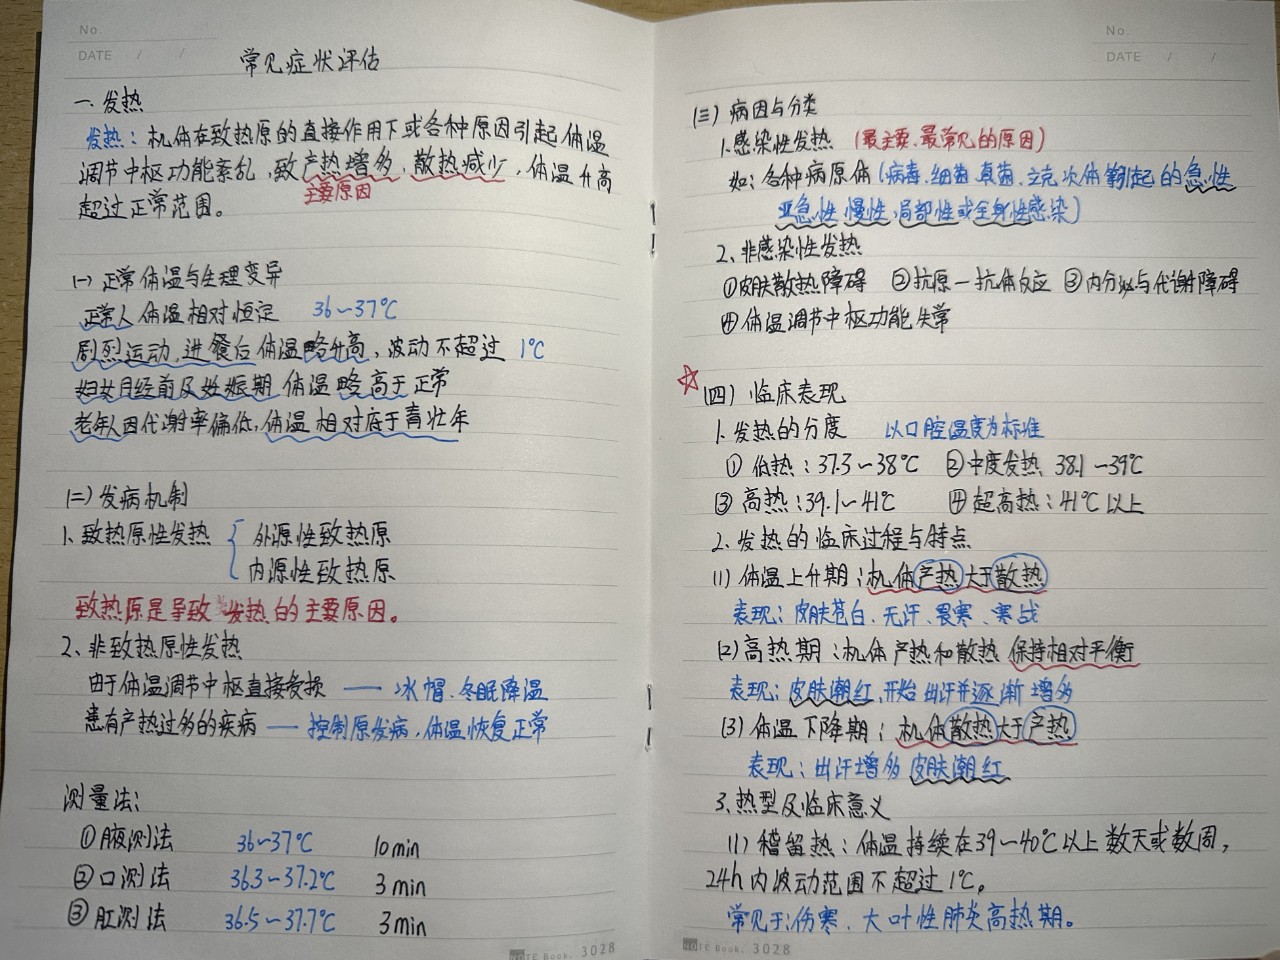 No.
DATE / /
常见症状评估
一. 发热
发热：机体在致热原的直接作用下或各种原因引起体温
调节中枢功能紊乱，致产热增多，散热减少，体温升高
主要原因
超过正常范围。
(一) 正常体温与生理变异
正常人体温相对恒定 36~37℃
剧烈运动，进餐后体温略升高，波动不超过 1℃
妇女月经前及妊娠期 体温略高于正常
老年人因代谢率偏低，体温相对底于青壮年
(二) 发病机制
1. 致热原性发热 { 外源性致热原
内源性致热原
致热原是导致发热的主要原因。
2、非致热原性发热
由于体温调节中枢直接受损 —— 冰帽、冬眠降温
患有产热过多的疾病 —— 控制原发病，体温恢复正常
测量法：
①腋测法 36~37℃ 10min
②口测法 36.3~37.2℃ 3min
③肛测法 36.5~37.7℃ 3min
NOTE Book. 3028
No.
DATE / /
(三) 病因与分类
1.感染性发热 (最主要、最常见的原因)
如：各种病原体(病毒、细菌、真菌、立克次体等引起的急性
亚急性、慢性、局部性或全身性感染)
2、非感染性发热
①皮肤散热障碍 ②抗原—抗体反应 ③内分泌与代谢障碍
④体温调节中枢功能失常
☆(四) 临床表现
1. 发热的分度 以口腔温度为标准
① 低热：37.3~38℃ ②中度发热 38.1~39℃
③ 高热：39.1~41℃ ④超高热：41℃以上
2. 发热的临床过程与特点
(1) 体温上升期：机体产热大于散热
表现：皮肤苍白、无汗、畏寒、寒战
(2) 高热期：机体产热和散热保持相对平衡
表现：皮肤潮红，开始出汗并逐渐增多
(3) 体温下降期：机体散热大于产热
表现：出汗增多 皮肤潮红
3. 热型及临床意义
(1) 稽留热：体温持续在39~40℃以上数天或数周，
24h内波动范围不超过1℃。
常见于：伤寒、大叶性肺炎高热期。
NOTE Book. 3028